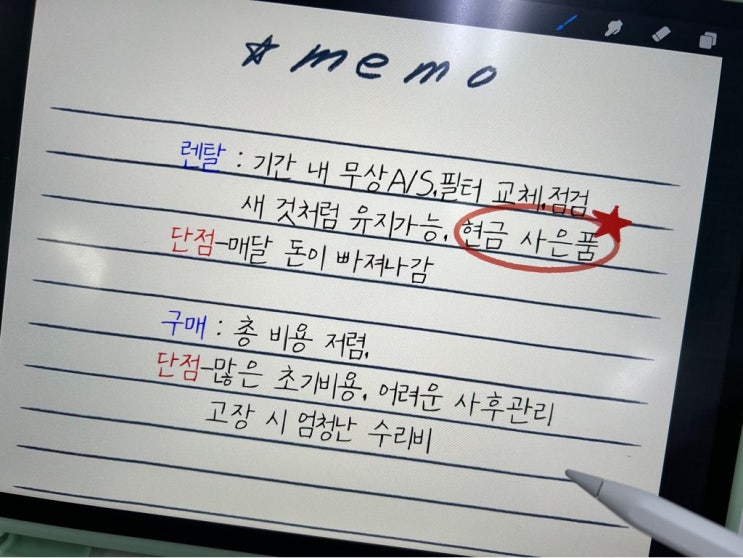 ☆memo
렌탈 : 기간 내 무상A/S, 필터 교체, 점검
새 것처럼 유지가능, 현금 사은품
단점-매달 돈이 빠져나감
구매 : 총 비용 저렴,
단점-많은 초기비용, 어려운 사후관리
고장 시 엄청난 수리비